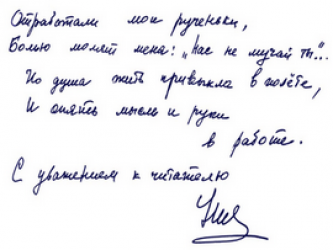 Отработали мои рученьки,
Болью молят меня: „Нас не мучай ты"...
Но душа жить привыкла в полёте,
И опять мысль и руки
в работе.
С уважением к читателю